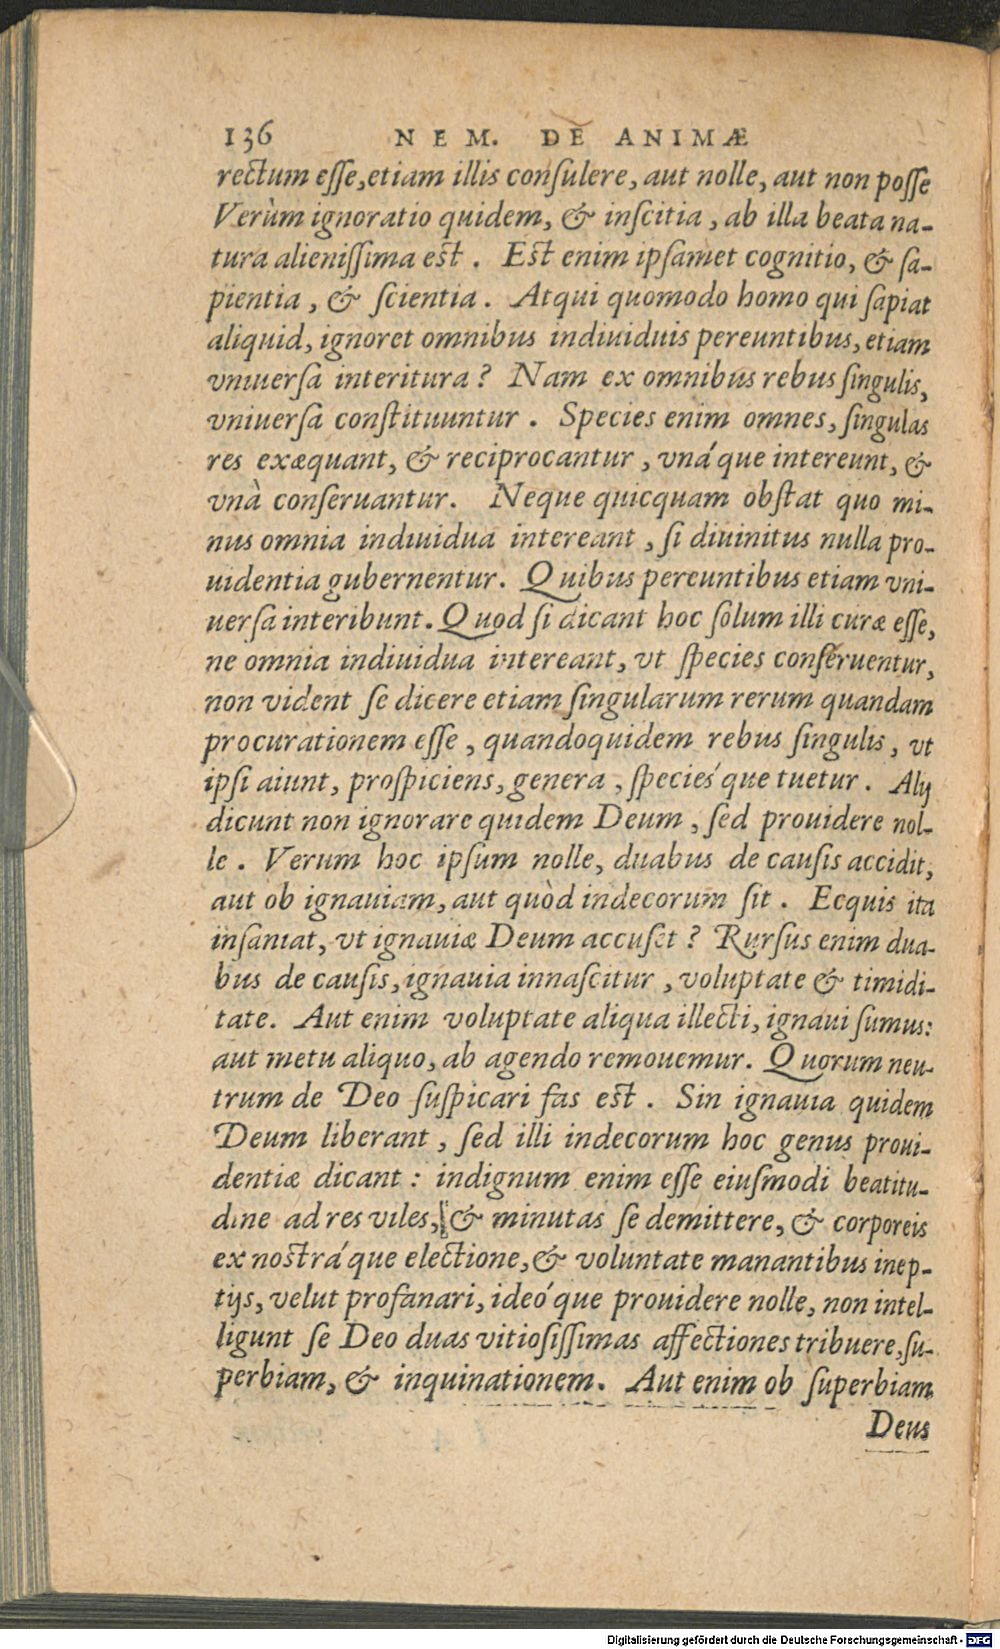 136 NEM. DE ANIMÆ
rectum eſſe, etiam illis conſulere, aut nolle, aut non poſſe
Verùm ignoratio quidem, & inſcitia, ab illa beata na-
tura alieniſſima eſt. Eſt enim ipſamet cognitio, & ſa-
pientia, & ſcientia. Atqui quomodo homo qui ſapiat
aliquid, ignoret omnibus indiuiduis pereuntibus, etiam
vniuerſa interitura? Nam ex omnibus rebus ſingulis,
vniuerſa conſtituuntur. Species enim omnes, ſingulas
res exæquant, & reciprocantur, vná que intereunt, &
vnà conſeruantur. Neque quicquam obſtat quo mi-
nus omnia indiuidua intereant, ſi diuinitus nulla pro-
uidentia gubernentur. Quibus pereuntibus etiam vni-
uerſa interibunt. Quod ſi dicant hoc ſolum illi curæ eſſe,
ne omnia indiuidua intereant, vt ſpecies conſeruentur,
non vident ſe dicere etiam ſingularum rerum quandam
procurationem eſſe, quandoquidem rebus ſingulis, vt
ipſi aiunt, proſpiciens, genera, ſpecieś que tuetur. Alij
dicunt non ignorare quidem Deum, ſed prouidere nol-
le. Verum hoc ipſum nolle, duabus de cauſis accidit,
aut ob ignauiam, aut quòd indecorum ſit. Ecquis ita
inſaniat, vt ignauiæ Deum accuſet? Rurſus enim dua-
bus de cauſis, ignauia innaſcitur, voluptate & timidi-
tate. Aut enim voluptate aliqua illecti, ignaui ſumus:
aut metu aliquo, ab agendo remouemur. Quorum neu-
trum de Deo ſuſpicari fas eſt. Sin ignauia quidem
Deum liberant, ſed illi indecorum hoc genus proui-
dentiæ dicant: indignum enim eſſe eiuſmodi beatitu-
dine ad res viles, & minutas ſe demittere, & corporeis
ex noſtrá que electione, & voluntate manantibus inep-
tijs, velut profanari, ideó que prouidere nolle, non intel-
ligunt ſe Deo duas vitioſiſſimas affectiones tribuere, ſu-
perbiam, & inquinationem. Aut enim ob ſuperbiam
Deus
Digitalisierung gefördert durch die Deutsche Forschungsgemeinschaft - DFG